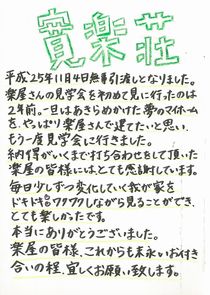 寛楽荘
平成25年11月4日無事引渡しとなりました。
楽屋さんの見学会を初めて見に行ったのは
2年前。一旦はあきらめかけた夢のマイホーム
を、やっぱり楽屋さんで建てたいと思い、
もう一度見学会に行きました。
納得がいくまで打ち合わせをして頂いた
楽屋の皆様にはとても感謝しています。
毎日少しずつ変化していく我が家を
ドキドキワクワクしながら見ることができ、
とても楽しかったです。
本当にありがとうございました。
楽屋の皆様、これからも末永いお付き
合いの程、宜しくお願い致します。